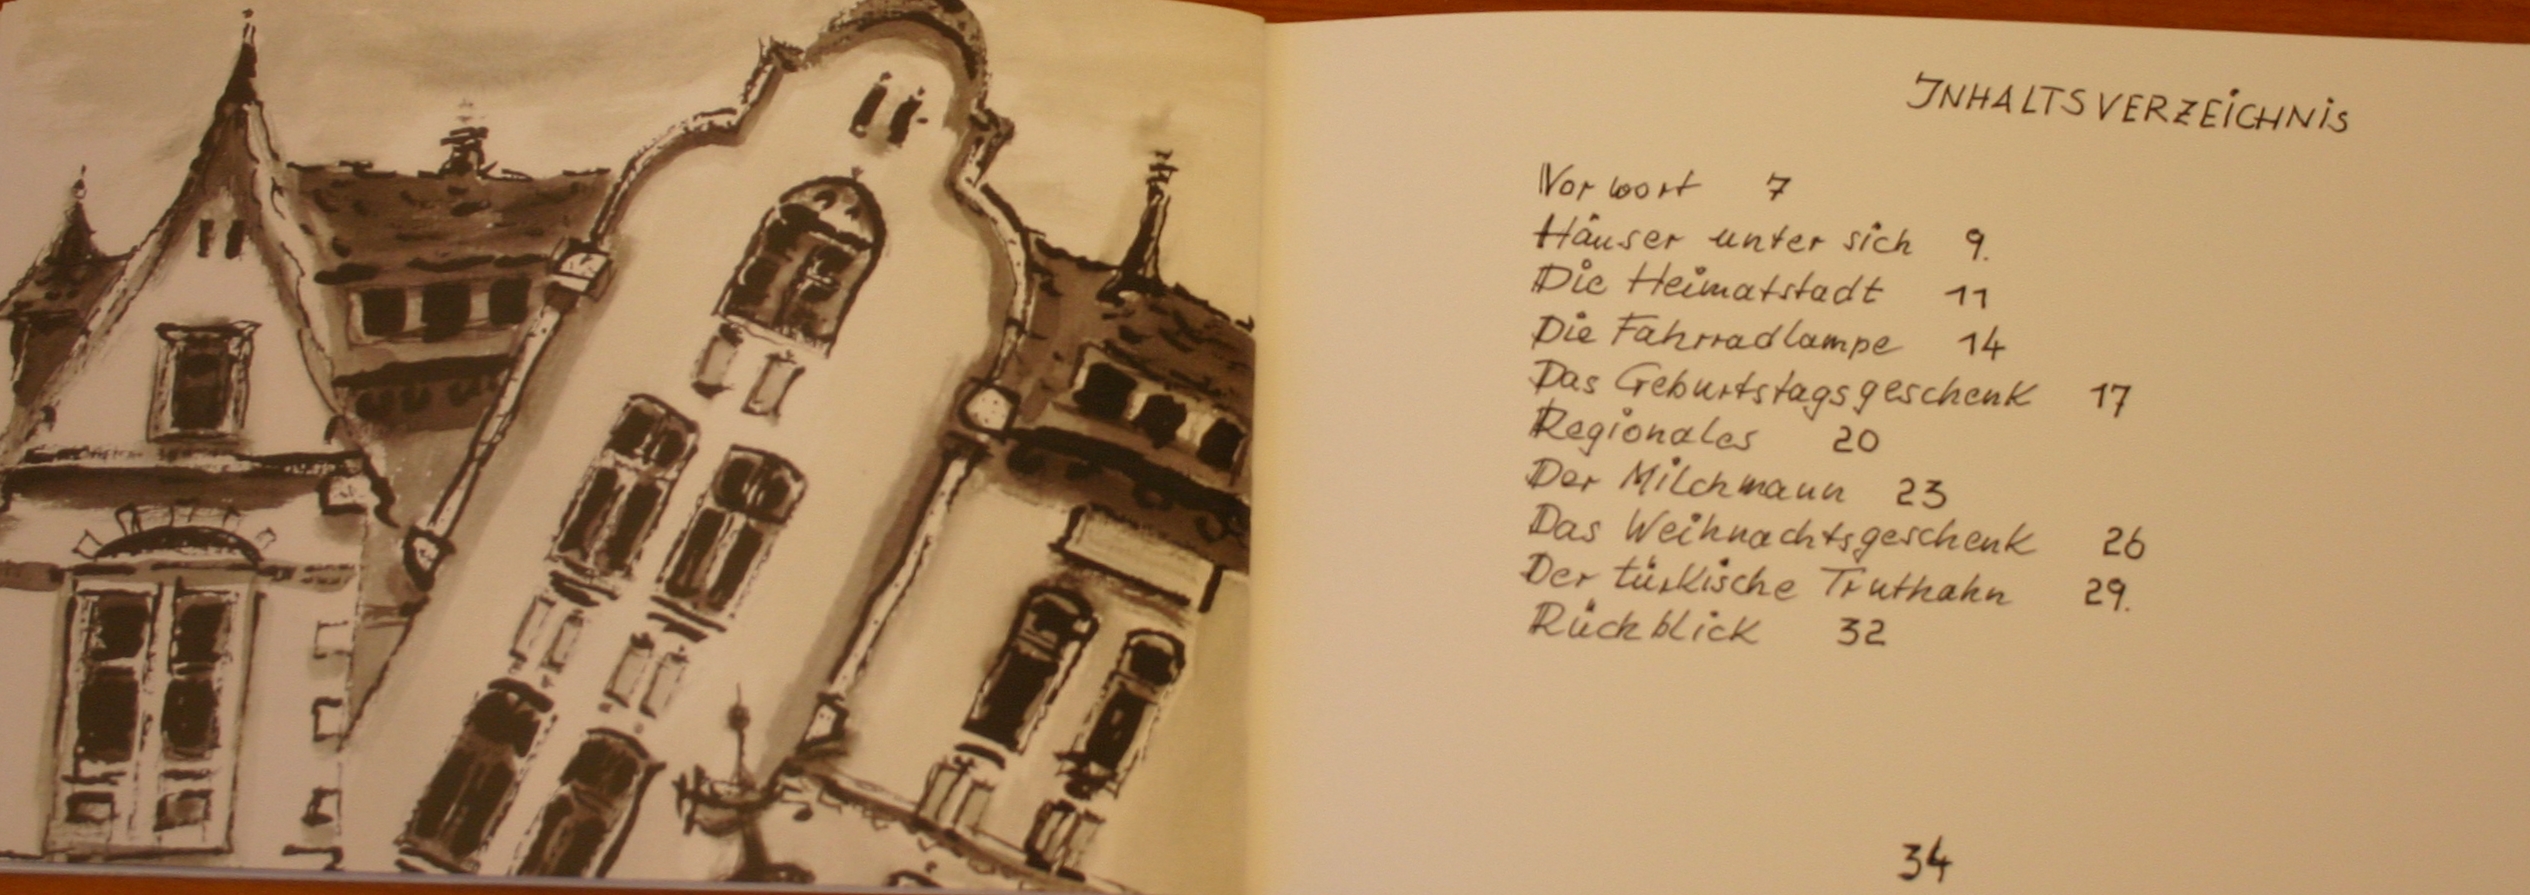 INHALTSVERZEICHNIS
Vorwort 7
Häuser unter sich 9.
Die Heimatstadt 11
Die Fahrradlampe 14
Das Geburtstagsgeschenk 17
Regionales 20
Der Milchmann 23
Das Weihnachtsgeschenk 26
Der türkische Truthahn 29.
Rückblick 32
34